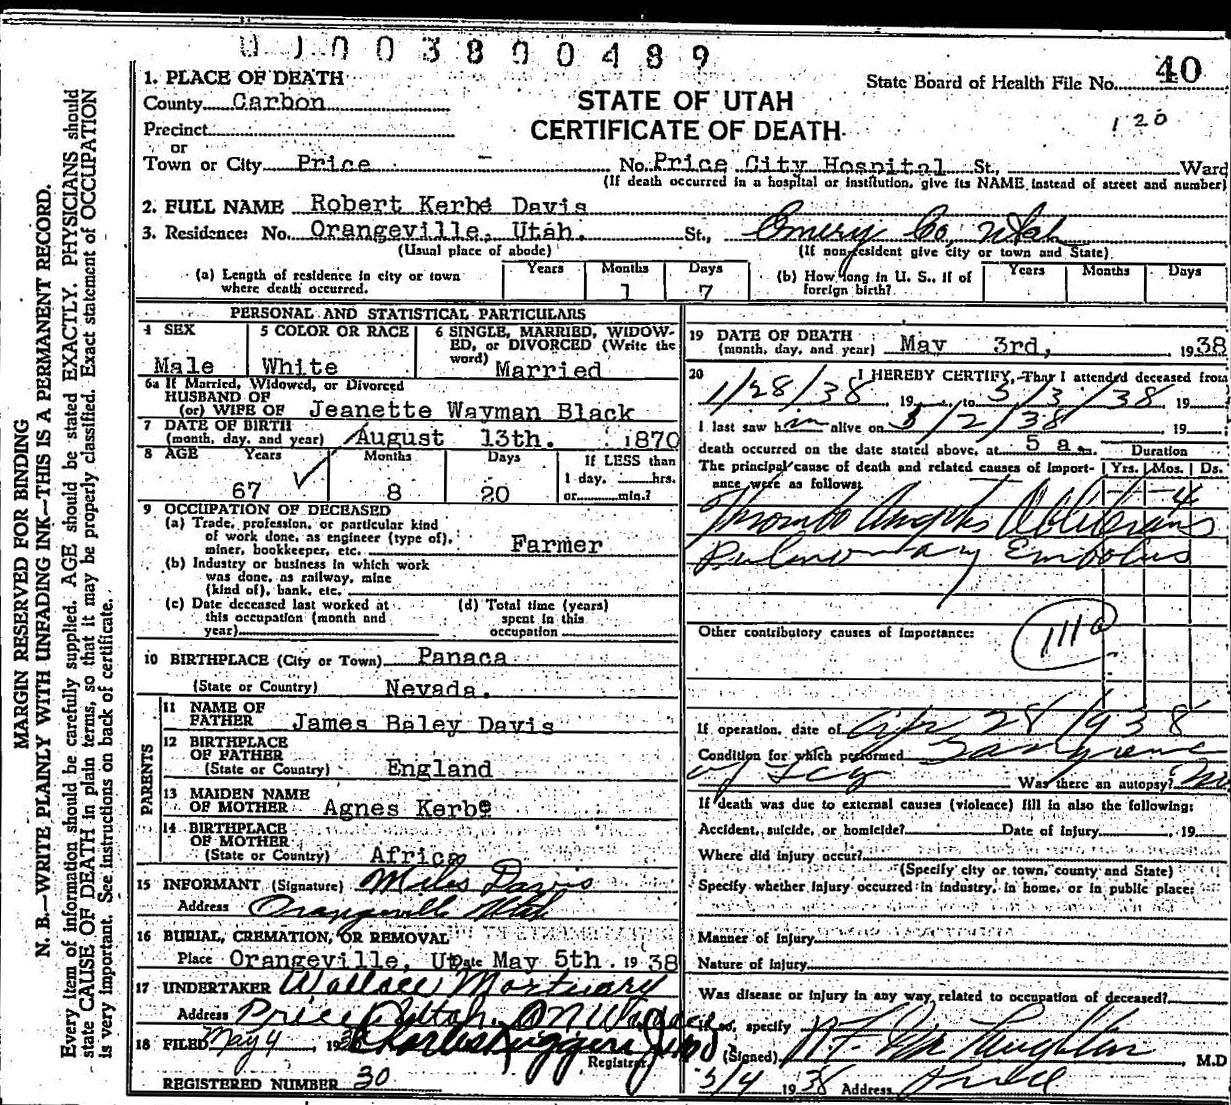 01003800489
40
1. PLACE OF DEATH
State Board of Health File No.
County Carbon
STATE OF UTAH
120
Precinct
CERTIFICATE OF DEATH
or
Town or City Price - No. Price City Hospital St., Ward
(If death occurred in a hospital or institution, give its NAME instead of street and number)
2. FULL NAME Robert Kerbe Davis
3. Residence: No. Orangeville, Utah. St., Emery Co, Utah
(Usual place of abode) (If non-resident give city or town and State)
(a) Length of residence in city or town where death occurred. Years Months 1 Days 7
(b) How long in U. S., if of foreign birth? Years Months Days
PERSONAL AND STATISTICAL PARTICULARS
4 SEX Male
5 COLOR OR RACE White
6 SINGLE, MARRIED, WIDOWED, or DIVORCED (Write the word) Married
6a If Married, Widowed, or Divorced
HUSBAND OF
(or) WIFE OF Jeanette Wayman Black
7 DATE OF BIRTH
(month, day, and year) August 13th. 1870
8 AGE Years 67 Months 8 Days 20
If LESS than
1 day, hrs.
or min.?
9 OCCUPATION OF DECEASED
(a) Trade, profession, or particular kind
of work done, as engineer (type of),
miner, bookkeeper, etc. Farmer
(b) Industry or business in which work
was done, as railway, mine
(kind of), bank, etc.
(c) Date deceased last worked at
this occupation (month and
year)
(d) Total time (years)
spent in this
occupation
10 BIRTHPLACE (City or Town) Panaca
(State or Country) Nevada.
PARENTS
11 NAME OF
FATHER James Baley Davis
12 BIRTHPLACE
OF FATHER
(State or Country) England
13 MAIDEN NAME
OF MOTHER Agnes Kerbe
14 BIRTHPLACE
OF MOTHER
(State or Country) Africa
15 INFORMANT (Signature) Miles Davis
Address Orangeville Utah
16 BURIAL, CREMATION, OR REMOVAL
Place Orangeville, Ut Date May 5th. 1938
17 UNDERTAKER Wallace Mortuary
Address Price Utah.
18 FILED May 4, 19
Registrar
REGISTERED NUMBER 30
19 DATE OF DEATH
(month, day, and year) May 3rd, 1938
20 I HEREBY CERTIFY, That I attended deceased from
1/28/38 19 to 5/3/38 19
I last saw him alive on 5/2/38 19
death occurred on the date stated above, at 5 a. m. Duration
The principal cause of death and related causes of importance were as follows: Yrs. Mos. Ds.
4
Thrombo Angitis Obliterans
Pulmonary Embolus
Other contributory causes of importance:
111a
If operation, date of Apr 28 1938
Condition for which performed Gangrene
of Leg Was there an autopsy? No
If death was due to external causes (violence) fill in also the following:
Accident, suicide, or homicide? Date of injury , 19
Where did injury occur?
(Specify city or town, county and State)
Specify whether injury occurred in industry, in home, or in public place:
Manner of Injury
Nature of Injury
Was disease or injury in any way related to occupation of deceased?
If so, specify
(Signed) M.D
5/4 1938 Address Price
MARGIN RESERVED FOR BINDING
N. B.—WRITE PLAINLY WITH UNFADING INK—THIS IS A PERMANENT RECORD.
Every item of information should be carefully supplied. AGE should be stated EXACTLY. PHYSICIANS should
state CAUSE OF DEATH in plain terms, so that it may be properly classified. Exact statement of OCCUPATION
is very important. See instructions on back of certificate.